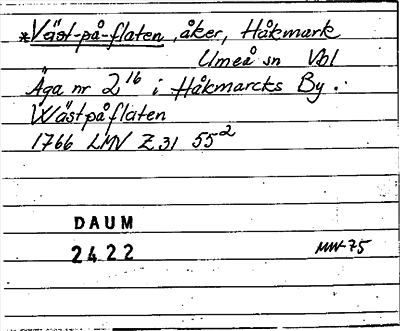 *Väst-på-flaten, åker, Håkmark
Umeå sn Vbl
Äga nr 2¹⁶ i Håkmarcks By.:
Wästpåflaten
1766 LMV Z 31 55²
DAUM
2422
MW-75